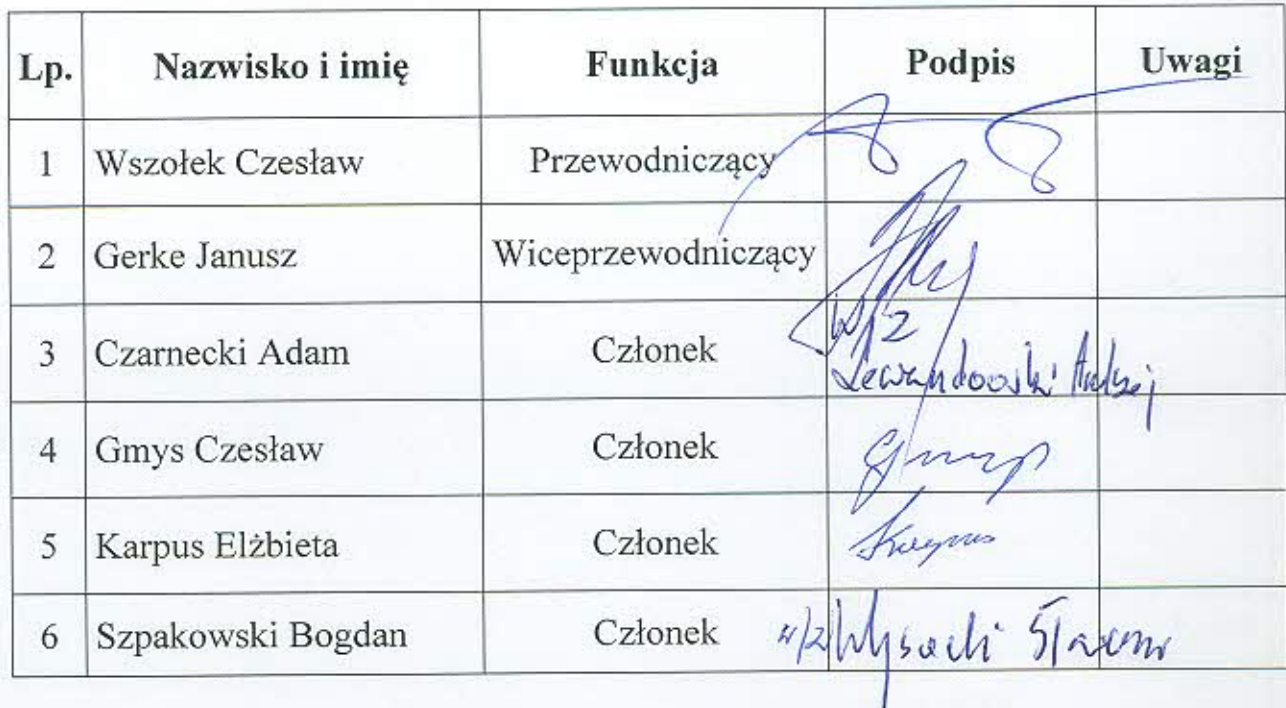 Lp. Nazwisko i imię Funkcja Podpis Uwagi
1 Wszołek Czesław Przewodniczący
2 Gerke Janusz Wiceprzewodniczący
3 Czarnecki Adam Członek w/z Lewandowski Andrzej
4 Gmys Czesław Członek Gmys
5 Karpus Elżbieta Członek Karpus
6 Szpakowski Bogdan Członek w/z Wysocki